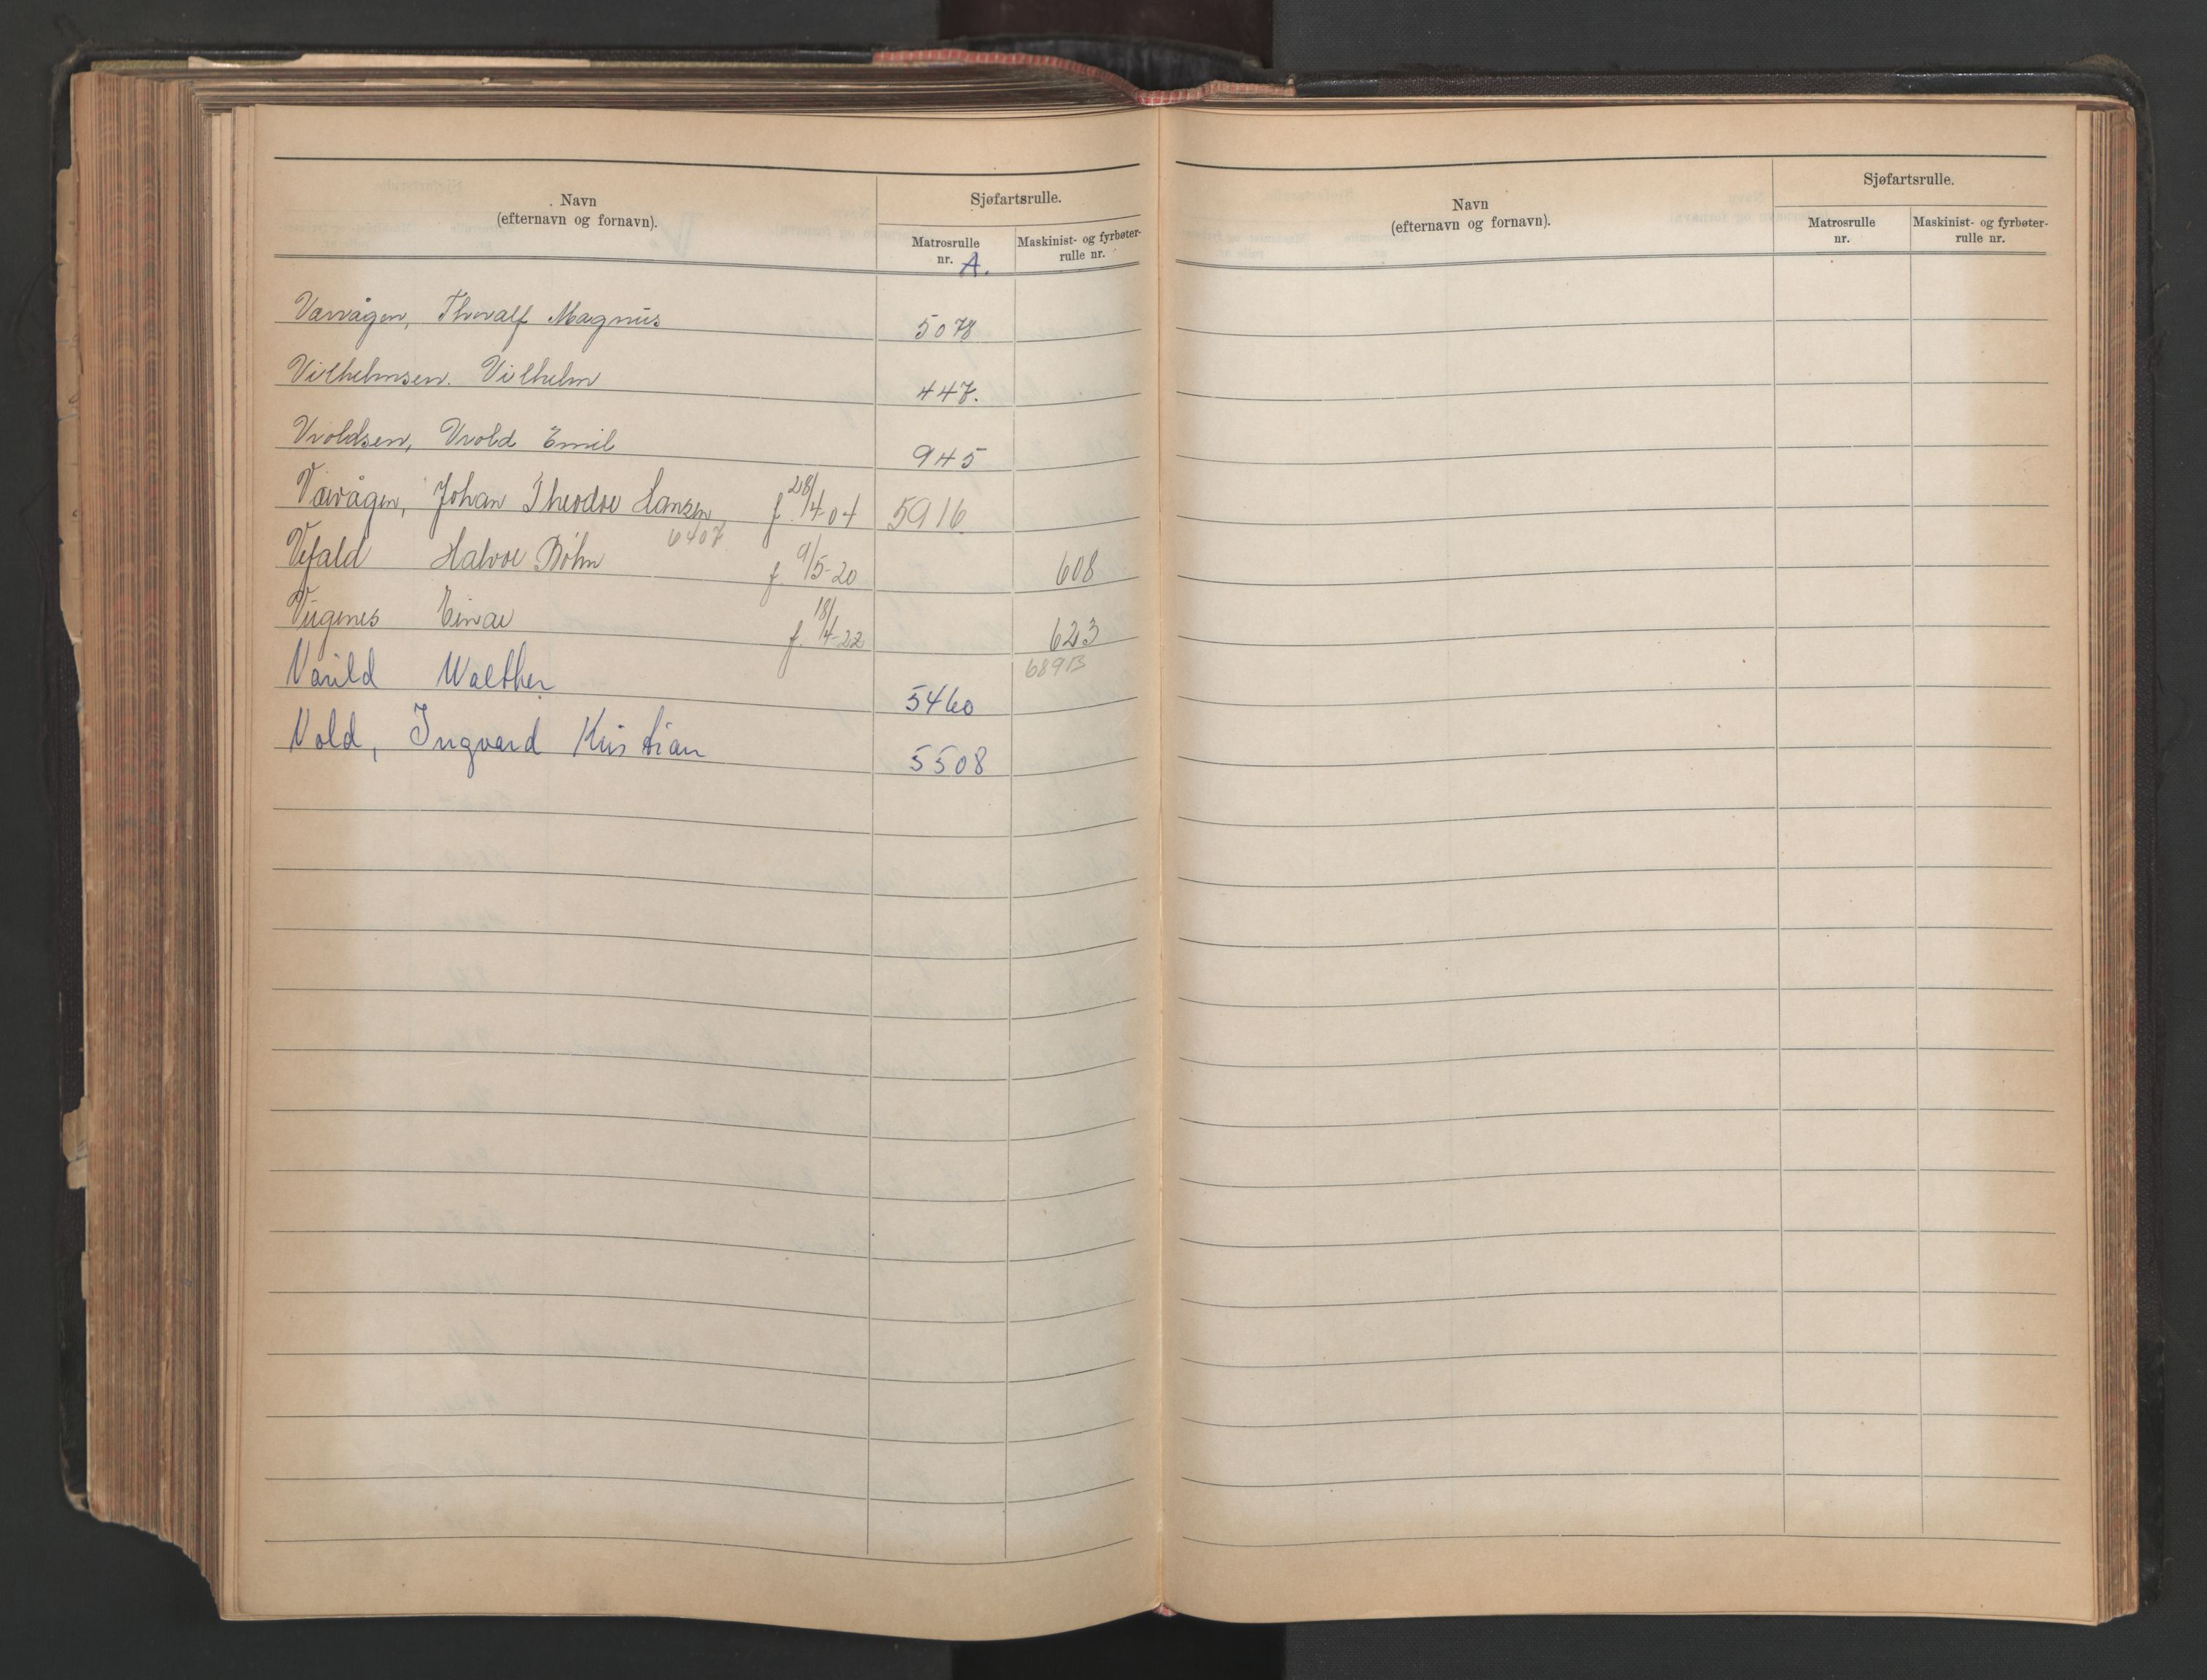 Navn
(efternavn og fornavn).
Sjøfartsrulle.
Matrosrulle
nr. A.
Maskinist- og fyrbøter-
rulle nr.
Værvågen, Thoralf Magnus 5078
Vilhelmsen. Vilhelm 447.
Vroldsen, Vrold Emil 945
Værvågen, Johan Theodor Hansen f. 28/4-04 5916
6407
Vefald Halvor Böhn f. 9/5-20 608
Vegenes Einar f. 18/4-22 623
689B
Varild Walther 5460
Vold, Ingvard Kristian 5508
Navn
(efternavn og fornavn).
Sjøfartsrulle.
Matrosrulle
nr.
Maskinist- og fyrbøter-
rulle nr.